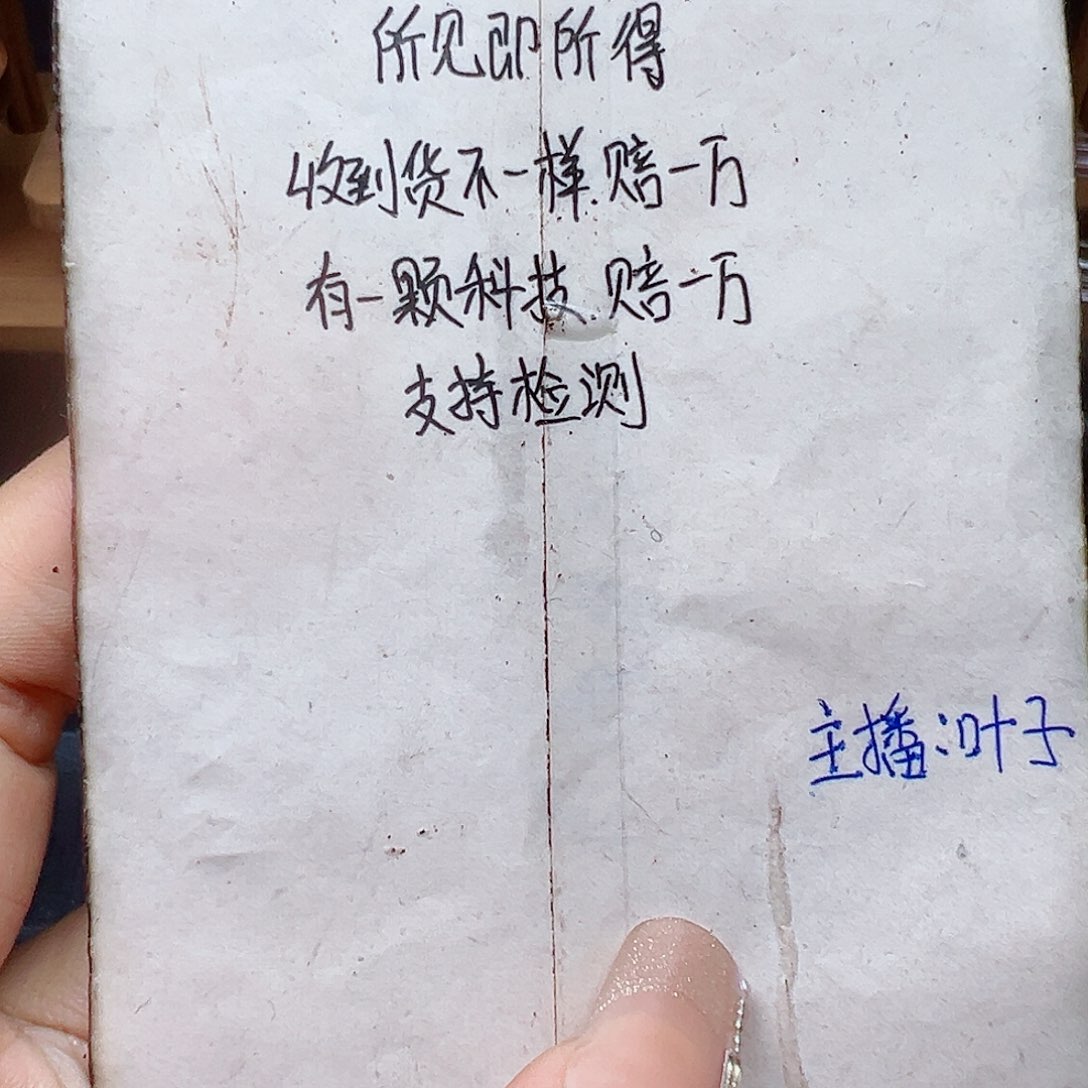 所见即所得
收到货不一样.赔一万
有一颗科技.赔一万
支持检测
主播:叶子